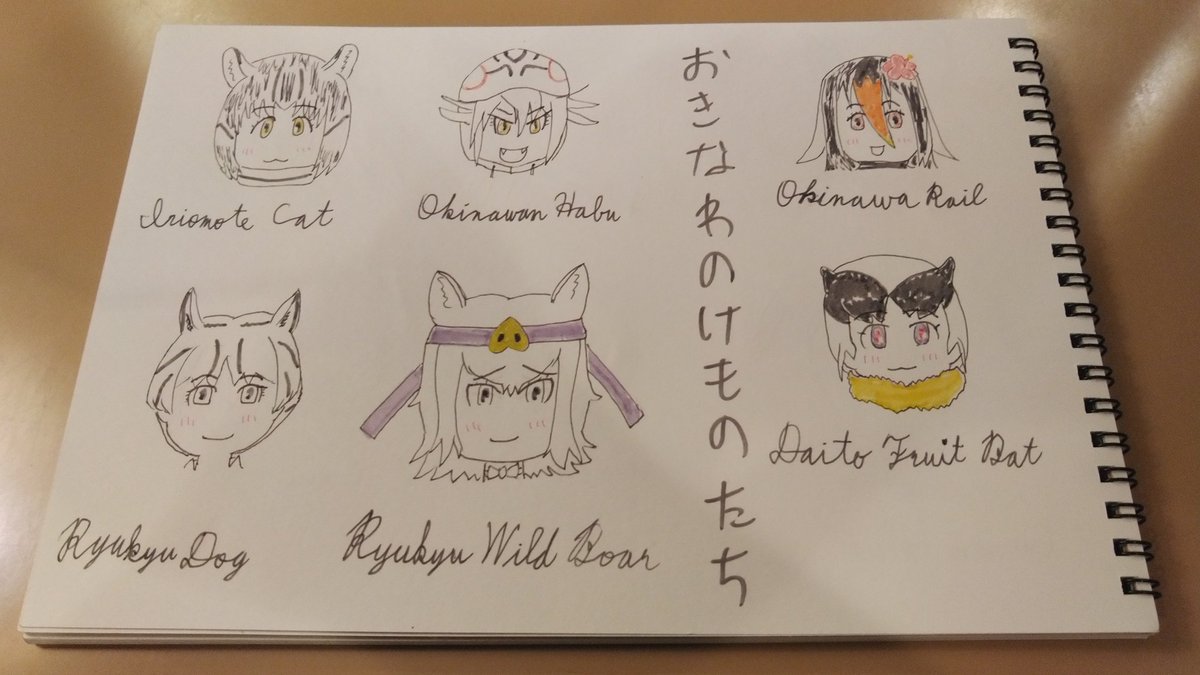 Iriomote Cat
Okinawan Habu
おきなわのけものたち
Okinawa Rail
Ryukyu Dog
Ryukyu Wild Boar
Daito Fruit Bat